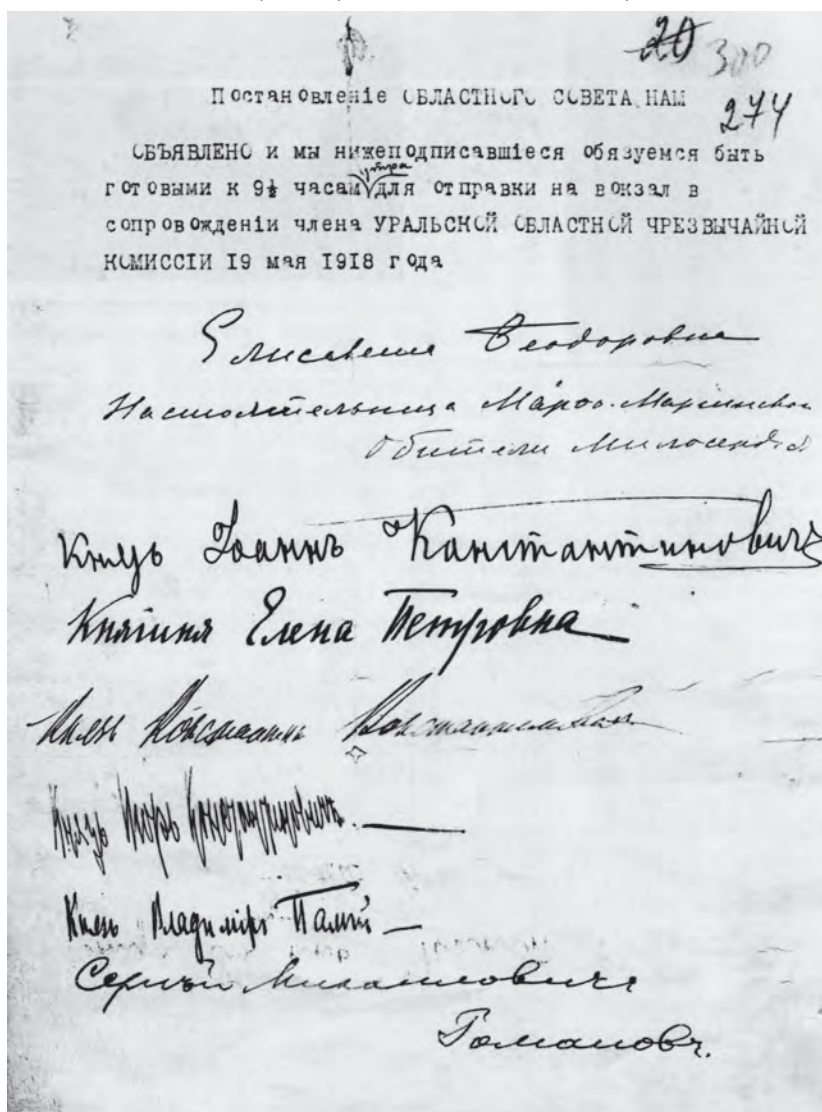 20 300
Постановленіе ОБЛАСТНОГО СОВЕТА НАМ
274
ОБЪЯВЛЕНО и мы нижеподписавшіеся обязуемся быть
утра
готовыми к 9½ часам для отправки на вокзал в
сопровожденіи члена УРАЛЬСКОЙ ОБЛАСТНОЙ ЧРЕЗВЫЧАЙНОЙ
КОМИССІИ 19 мая 1918 года
Елисавета Ѳеодоровна
Настоятельница Марѳо-Маріинской
Обители Милосердія
Князь Іоаннъ Канстантиновичъ
Княгиня Елена Петровна
Князь Константинъ Константиновичъ
Князь Игорь Константиновичъ
Князь Владиміръ Палѣй
Сергѣй Михаиловичъ
Романовъ.